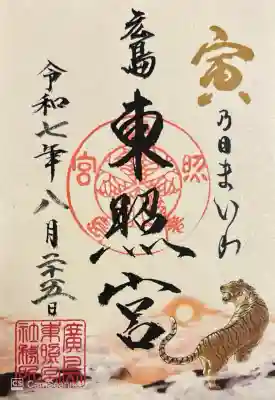 寅乃日まいり
広島
東照宮
令和七年八月二十五日
廣島
東照宮
社務所